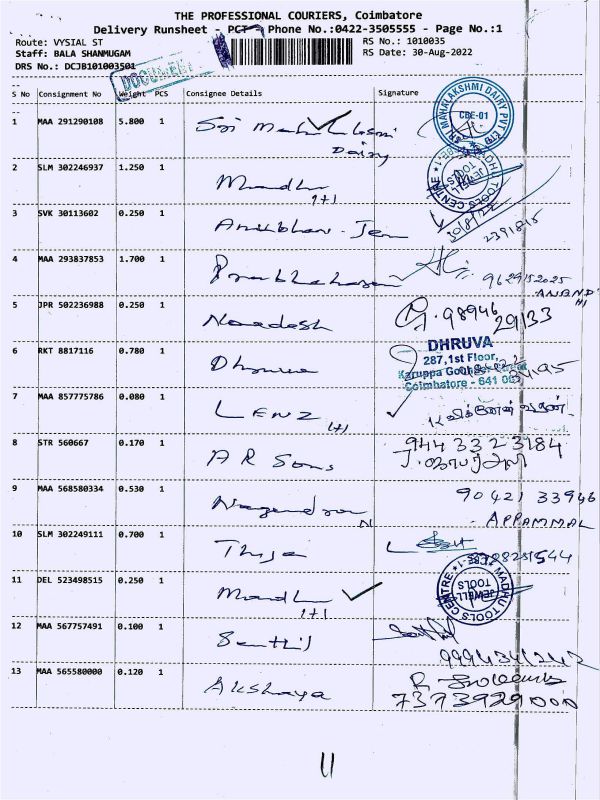 THE PROFESSIONAL COURIERS, Coimbatore
Delivery Runsheet - PCT - Phone No.:0422-3505555 - Page No.:1
Route: VYSIAL ST RS No.: 1010035
Staff: BALA SHANMUGAM RS Date: 30-Aug-2022
DRS No.: DCJB101003501
DOCUMENT
S No Consignment No Weight PCS Consignee Details Signature
1 MAA 291290108 5.800 1 Sri Mahalakshmi
Dairy
SRI MAHALAKSHMI DAIRY PVT LTD
CBE-01
2 SLM 302246937 1.250 1 Madhu
1+1
MADHU TOOLS CENTRE
JEWELL
TOOLS
CBE-1
30/8/22
3 SVK 30113602 0.250 1 Anubhav - Jem
2391815
4 MAA 293837853 1.700 1 Prabhakaran
9629152025
ANAND
5 JPR 502236988 0.250 1 Naradesh
98946
29133
6 RKT 8817116 0.780 1 Dhruva
DHRUVA
287,1st Floor,
Karuppa Gounder Street
Coimbatore - 641 001
7 MAA 857775786 0.080 1 LENZ
1+1
8 STR 560667 0.170 1 A R Sons
944 332 3184
9 MAA 568580334 0.530 1 Nagendran
N
90421 33946
- APPAMMAL
10 SLM 302249111 0.700 1 Thija
11 DEL 523498515 0.250 1 Madhu
1+1
MADHU TOOLS CENTRE
JEWELL
TOOLS
CBE-1
12 MAA 567757491 0.100 1 Senthil
9994341242
13 MAA 565580000 0.120 1 Akshaya
7373929000
11